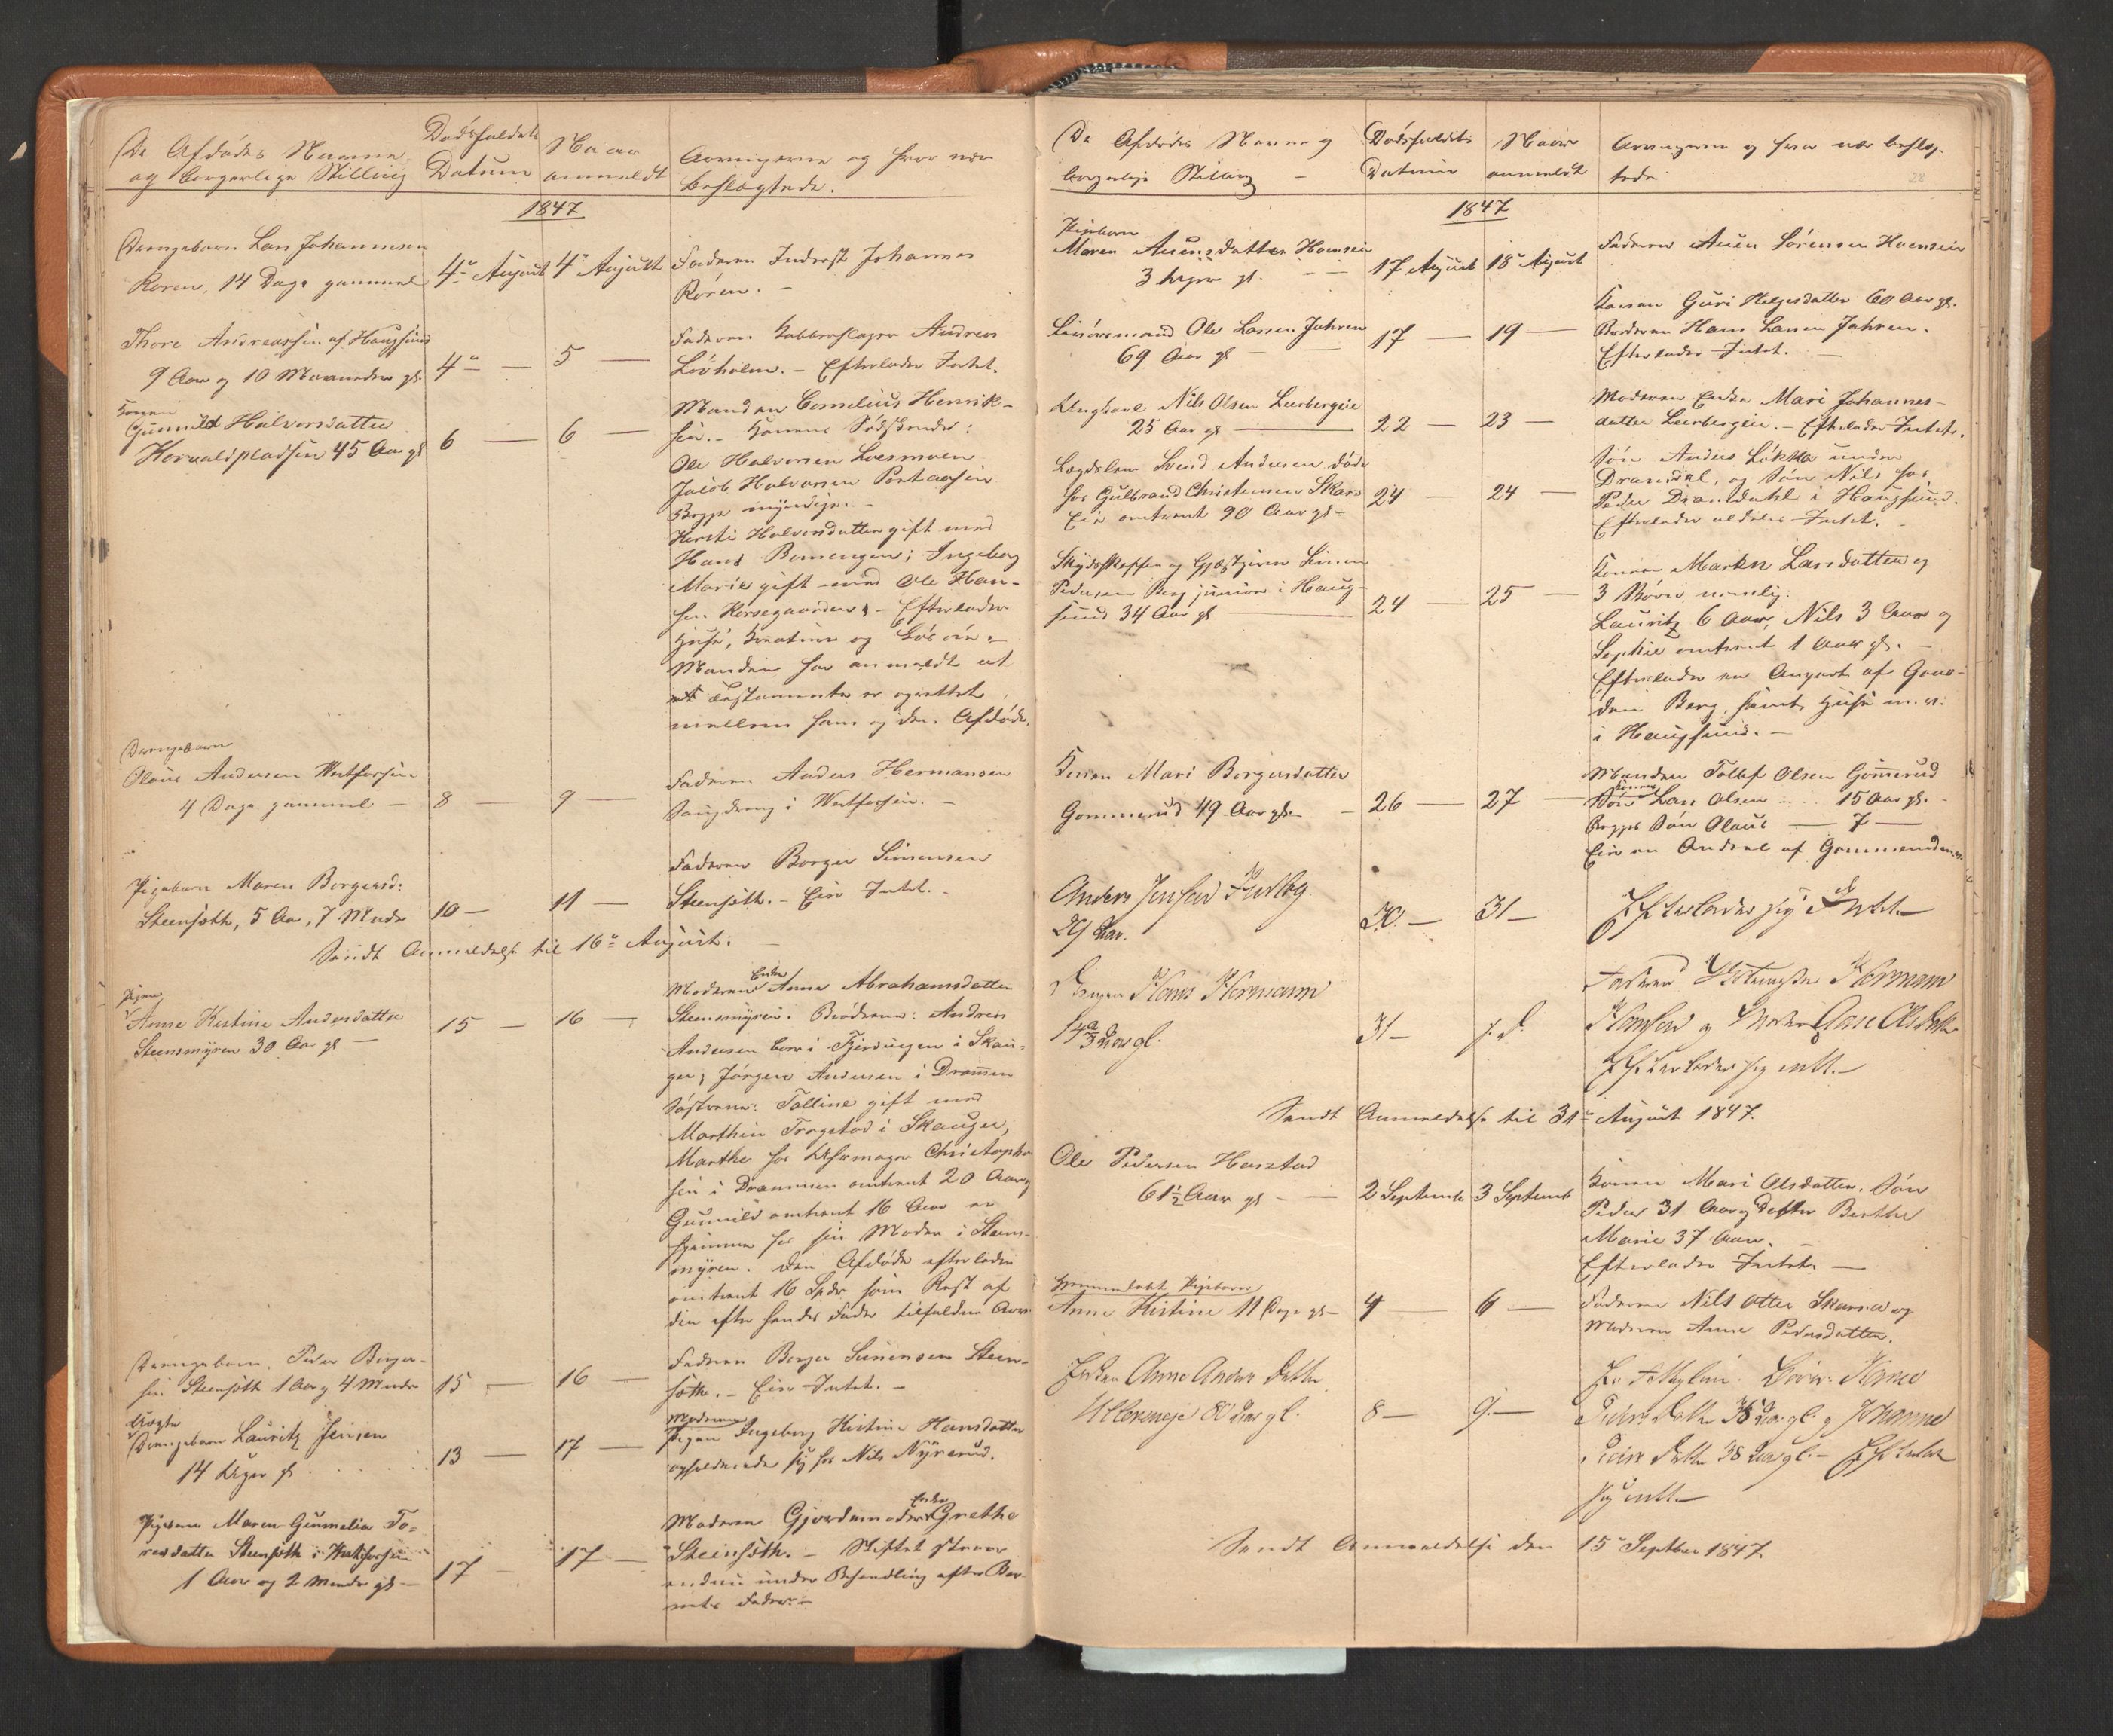 De Afdødes Navne
og borgerlige Stilling
Dødsfaldets
Datum
Naar
anmeldt
Arvingerne og hvor nær
beslægtede.
1847
Drengebarn Lars Johannesen
Koren, 14 Dage gammel
4de August
4de August
Faderen Inderst Johannes
Koren. -
Thore Andreassen af Haugsund
9 Aar og 10 Maaneder gl.
4de
5
Faderen Kobberslager Andreas
Løvholm. - Efterlader Intet.
Konen
Gunnild Halvorsdatter
Horvaldpladsen 45 Aar gl
6
6
Manden Cornelius Henrik-
sen. - Konens Sødskende:
Ole Halvorsen Loesmoen
Jacob Halvorsen Portaasen
Begge myndige. -
Kersti Halvorsdatter gift med
Hans Bomengen; Ingeborg
Marie gift med Ole Han-
sen Korsegaarden, - Efterlader
Huse, Kreature og Løsøre -
Manden har anmeldt at
et Testamente er oprettet
mellem ham og den Afdøde.
Drengebarn
Olaus Andersen Vestfossen
4 Dage gammel -
8
9
Faderen Anders Hermansen
Saugdreng i Vestfossen. -
Pigebarn Maren Borgersd:
Steensæth, 5 Aar, 7 Mndr
10 -
11 -
Faderen Borger Simensen
Steensæth. - Eier Intet. -
Sendt Anmeldelse til 16de August.
Pigen
Anne Kirstine Andersdatter
Steensmyren 30 Aar gl -
15 -
16 -
Moderen Enke Anne Abrahamsdatter
Steensmyren. Brødrene: Andreas
Andersen boer i Fjerdingen i Skau-
ger, Jørgen Andersen i Dramen
Søstrene: Talline gift med
Marthin Tragstad i Skauger,
Marthe hos Uhrmager Christopher-
sen i Drammen omtrent 20 Aar og
Gunnild omtrent 16 Aar er
hjemme hos sin Moder i Steens-
myren. Den Afdøde efterlader
omtrent 16 Spdr som Rest af
den efter hendes Fader tilfaldne Arv.
Drengebarn Peder Borger-
sen Steensæth 1 Aar og 4 Mndr
15 -
16 -
Faderen Borger Simensen Steen-
sæth. - Eier Intet. -
Uægte
Drengebarn Lauritz Jensen
14 Uger gl
13 -
17 -
Moderen
Pigen Ingeborg Kirstine Hansdatter
opholdende sig hos Nils Nyrerud.
Pigebarn Maren Gunnelia To-
resdatter Steensæth i Vestfossen
1 Aar og 2 Mndr gl -
17 -
17 -
Moderen Gjordemoder Enke Grethe
Steensæth. - Skiftet staaer
endnu under Behandling efter Bar-
nets Fader. -
De Afdødes Navne og
borgerlige Stilling -
Dødsfaldets
Datum
Naar
anmeldt
Arvingerne og hvor nær beslæg-
tede
28
1847
Pigebarn
Maren Auensdatter Hoenseie
3 Uger gl. - -
17 August
18de August
Faderen Auen Sørensen Hoenseie
Huusmand Ole Larsen Jahren
69 Aar gl -
17 -
19 -
Konen Guri Helgesdatter 60 Aar gl.
Broderen Hans Larsen Jahren.
Efterlader Intet. -
Ungkarl Nils Olsen Leerbergeie
25 Aar gl -
22 -
23 -
Moderen Enke Mari Johannes-
datter Leerbergeie. - Efterlader Intet.
Lægdslem Svend Andersen døde
hos Gulbrand Christensen Skars
Eie omtrent 90 Aar gl -
24 -
24 -
Søn Anders Løkka under
Dramdal, og Søn Nils hos
Peder Dramdahl i Haugsund.
Efterlader aldeles Intet. -
Skydsskaffer og Gjæstgiver Simen
Pedersen Berg junior i Haug-
sund 34 Aar gl -
24 -
25 -
Konen Marthe Larsdatter og
3 Børn nemlig:
Lauritz 6 Aar, Nils 3 Aar og
Sophie omtrent 1 Aar gl. -
Efterlader en Anpart af Gaar-
den Berg, samt Huse m. v.
i Haugsund. -
Konen Mari Borgersdatter
Gommerud 49 Aar gl. -
26 -
27 -
Manden Tollef Olsen Gomerud
Søn Lars Olsen ... 15 Aar gl. -
Begges Søn Olaus - 7 -
Eier en Andeel af Gommerud
Anders Jensen
29 Aar.
30 -
31 -
Efterlader sig Intet. -
Drengen Hans Hermann
14 Aar gl.
31 -
s. D.
Faderen Hermann
Hansen og Moder Aase Olsdatter
Efterlader sig intet. -
Sendt Anmeldelse til 31te August 1847.
Ole Pedersen Harstad
61½ Aar gl - -
2 September
3 Septemb
Konen Mari Olsdatter. Søn
Peder 31 Aar og Datter Berthe
Marie 37 Aar. -
Efterlader Intet. -
Hjemmedøbt Pigebarn
Anne Kirstine 11 Dage gl -
4 -
6 -
Faderen Nils Otter Skarseie og
Moderen Anne Pedersdatter.
Enken Anne Anders Datter
Ullernseje 80 Aar gl.
8 -
9. -
Pedersdatter 38 Aar gl. og Johanne
Peders Datter 38 Aar gl. - Efterlader
sig intet. -
Sendt Anmeldelse den 15de Septber 1847.